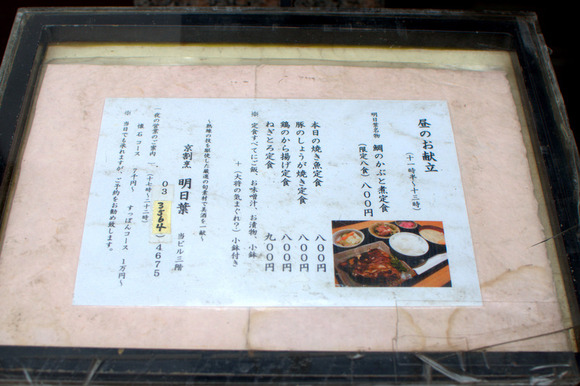 昼のお献立
(十一時半～十三時)
明日葉名物
鯛のかぶと煮定食
(限定八食) 八〇〇円
本日の焼き魚定食 八〇〇円
豚のしょうが焼き定食 八〇〇円
鶏のから揚げ定食 八〇〇円
ねぎとろ定食 九〇〇円
※ 定食すべてにご飯、お味噌汁、お漬物、小鉢
+(大将の気まぐれ?)小鉢付き
～熟練の技を駆使した厳選の旬素材で美酒を一献～
京割烹 明日葉 当ビル三階
03 3564 4675
夜の営業のご案内 (十七時～二十二時)
懐石コース 7千円～ すっぽんコース 1万円～
※ 当日でも承れますが、ご予約をお勧め致します。